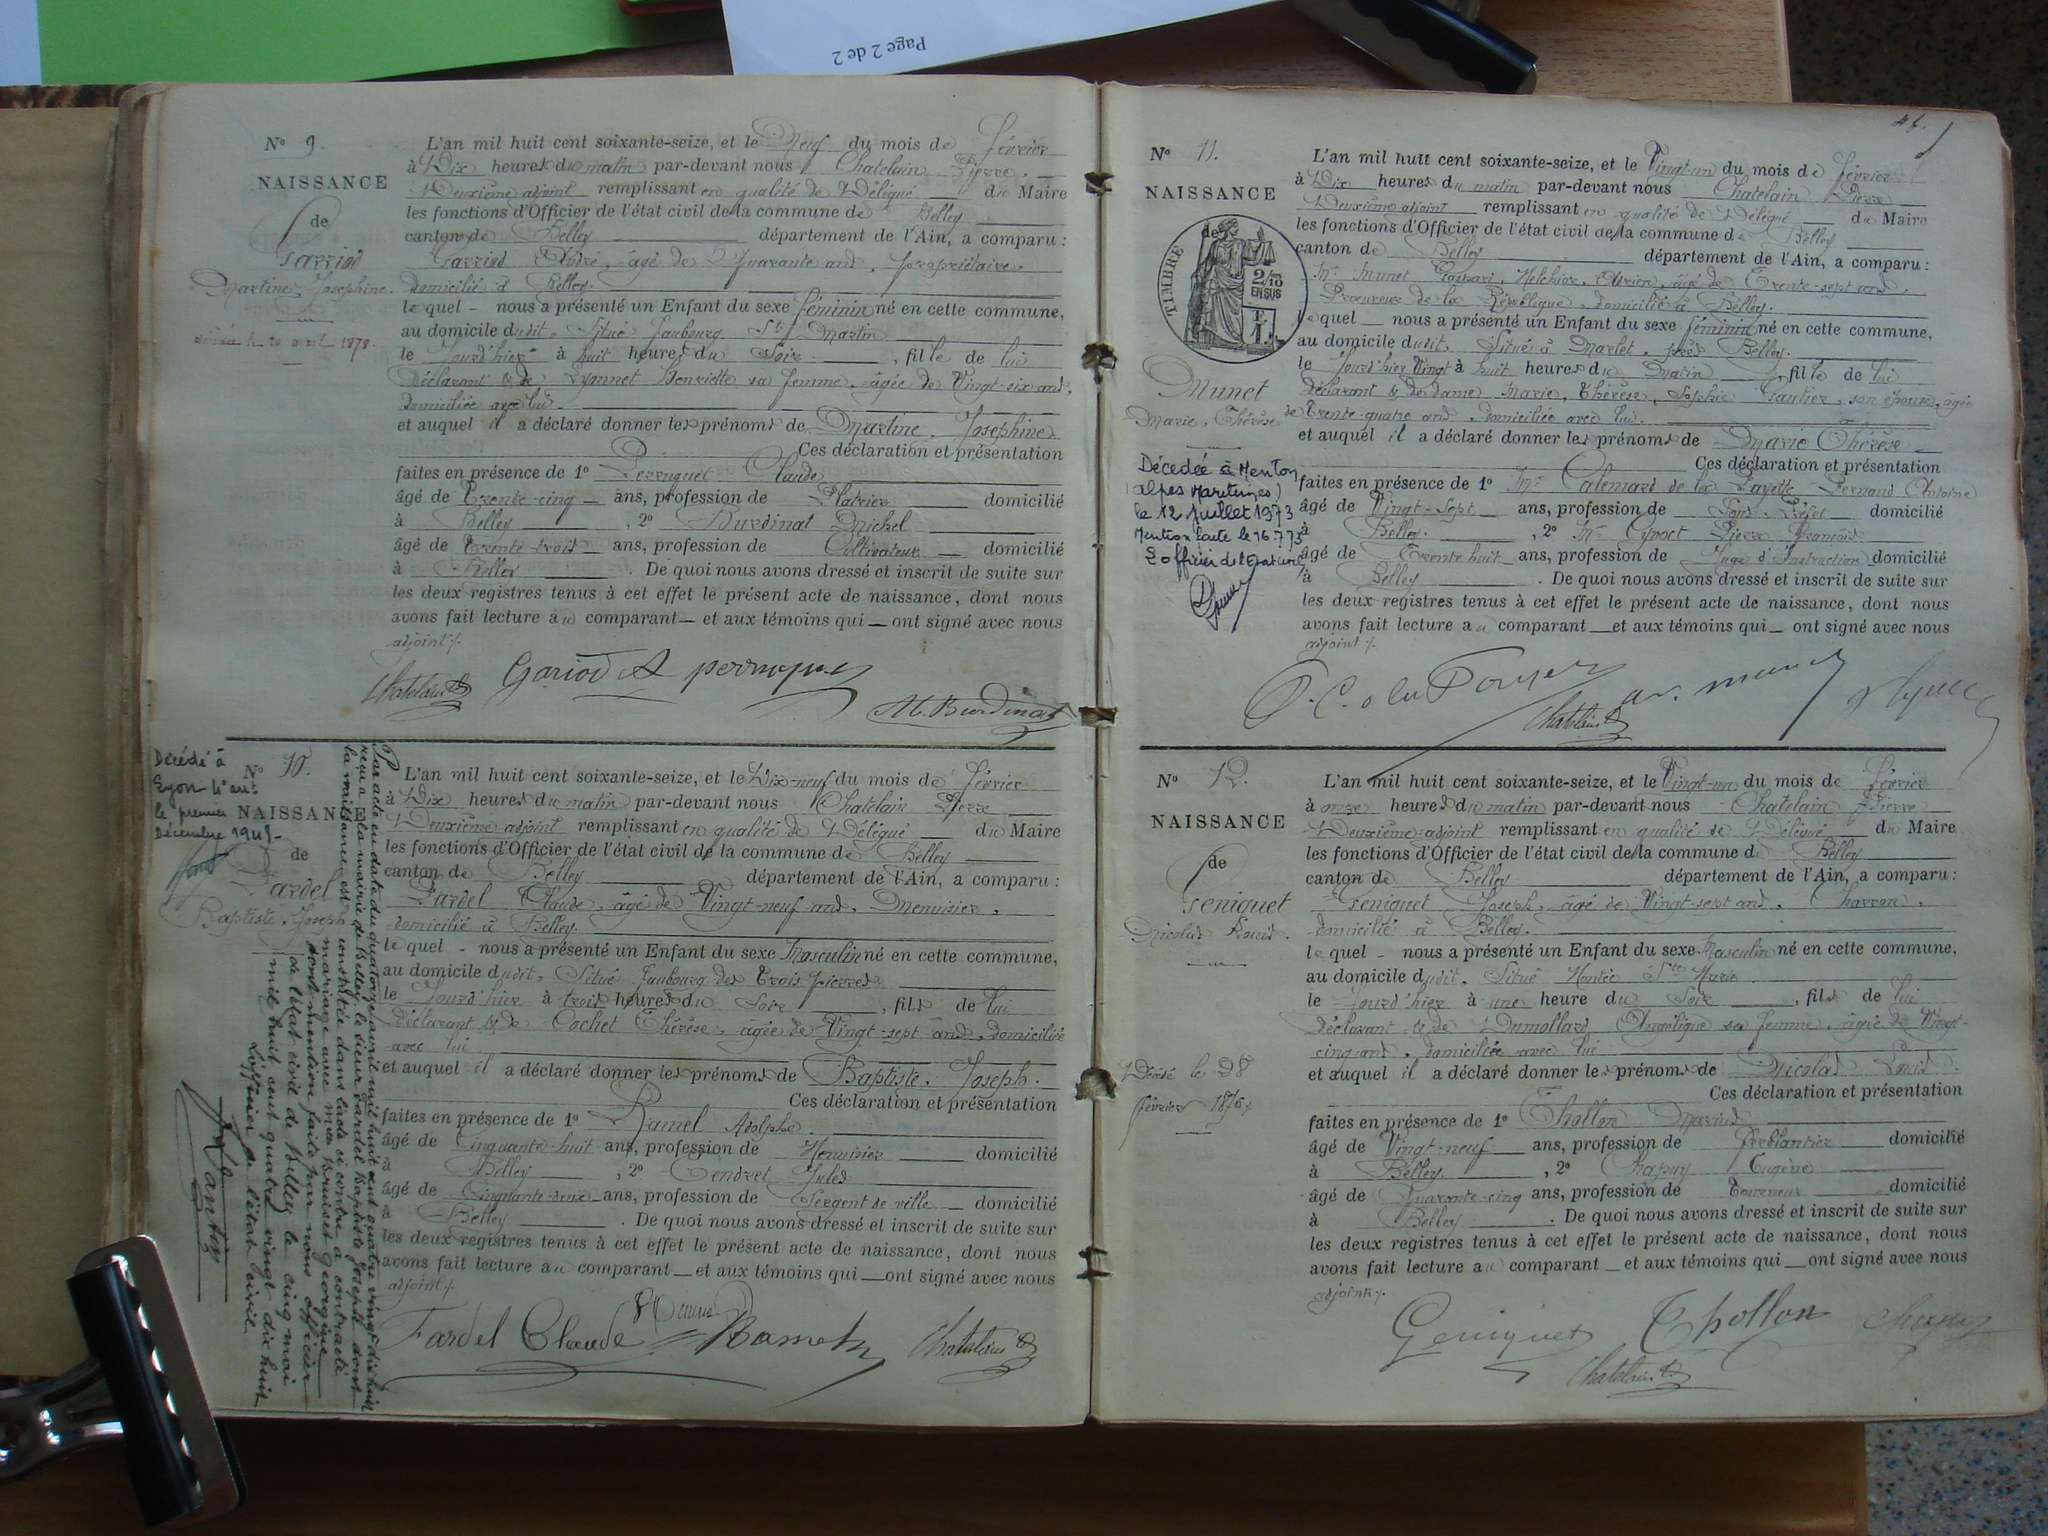 Page 2 de 2
N° 9.
NAISSANCE
de
Martine Joséphine.
L'an mil huit cent soixante-seize, et le Neuf du mois de Février
à Dix heures du matin par-devant nous Chatelain Pierre
Deuxième adjoint remplissant en qualité de Délégué du Maire
les fonctions d'Officier de l'état civil de la commune de Belley
canton de Belley département de l'Ain, a comparu :
André, âgé de Quarante ans, propriétaire,
domicilié à Belley.
lequel nous a présenté un Enfant du sexe féminin né en cette commune,
au domicile dudit, situé faubourg St Martin
le Jourd'hier à huit heures du Soir, fille de lui
Déclarant & de Lyonnet Henriette sa femme, âgée de Vingt-six ans,
domiciliée avec lui
et auquel il a déclaré donner les prénoms de Martine, Joséphine
Ces déclaration et présentation
faites en présence de 1° Perruquet Claude
âgé de Trente-cinq ans, profession de Platrier domicilié
à Belley, 2° Burdinat Michel
âgé de Trente-trois ans, profession de Cultivateur domicilié
à Belley. De quoi nous avons dressé et inscrit de suite sur
les deux registres tenus à cet effet le présent acte de naissance, dont nous
avons fait lecture au comparant et aux témoins qui ont signé avec nous
adjoint.
Chatelain Gariod A M. Burdinat
Décédé à
Lyon 4e arrt
le premier
Décembre 194
N° 10.
NAISSANCE
de
Fardel
Baptiste, Joseph
Par acte en date du quatorze avril mil huit cent quatre vingt dix huit
reçu à la mairie de Belley le sieur Fardel Baptiste Joseph dont
la naissance est constatée dans l'acte ci contre a contracté
mariage avec Mlle Bruiset Georgine
dont mention faite par nous officier
de l'état civil de Belley le cinq mai
mil huit cent quatre vingt dix huit
L'officier de l'état civil
L'an mil huit cent soixante-seize, et le Dix-neuf du mois de Février
à Dix heures du matin par-devant nous Chatelain Pierre
Deuxième adjoint remplissant en qualité de Délégué du Maire
les fonctions d'Officier de l'état civil de la commune de Belley
canton de Belley département de l'Ain, a comparu :
Fardel Claude, âgé de Vingt-neuf ans, Menuisier,
domicilié à Belley.
lequel nous a présenté un Enfant du sexe Masculin né en cette commune,
au domicile dudit, Situé faubourg des Trois pierres
le Jourd'hier à trois heures du Soir, fils de lui
déclarant & de Cochet Thérèse, âgée de Vingt-sept ans, domiciliée
avec lui
et auquel il a déclaré donner les prénoms de Baptiste, Joseph.
Ces déclaration et présentation
faites en présence de 1° Ramel Adolphe
âgé de Cinquante-huit ans, profession de Menuisier domicilié
à Belley, 2° Tendret Jules
âgé de Cinquante-seize ans, profession de Sergent de ville domicilié
à Belley. De quoi nous avons dressé et inscrit de suite sur
les deux registres tenus à cet effet le présent acte de naissance, dont nous
avons fait lecture au comparant et aux témoins qui ont signé avec nous
adjoint.
Fardel Claude Ramel Chatelain
N° 11.
NAISSANCE
de
TIMBRE
2/10
EN SUS
Munet
Marie, Thérèse
Décédée à Menton
(Alpes Maritimes)
le 12 Juillet 1973
Mention faite le 16.7.73
L'officier de l'Etat civil
L'an mil huit cent soixante-seize, et le Vingt-un du mois de Février
à Dix heures du matin par-devant nous Chatelain Pierre
Deuxième adjoint remplissant en qualité de Délégué du Maire
les fonctions d'Officier de l'état civil de la commune de Belley
canton de Belley département de l'Ain, a comparu :
Mr Munet Gaspard, Melchior, Adrien, âgé de Trente-sept ans,
Procureur de la République, domicilié à Belley.
lequel nous a présenté un Enfant du sexe féminin né en cette commune,
au domicile dudit, Situé à Marlet, près Belley.
le Jourd'hier Vingt à huit heures du Matin, fille de lui
déclarant & de dame Marie, Thérèse, Sophie Gautier, son épouse, âgée
de Trente-quatre ans, domiciliée avec lui.
et auquel il a déclaré donner les prénoms de Marie Thérèse
Ces déclaration et présentation
faites en présence de 1° Mr Calemard de la Fayette Fernand Antoine
âgé de Vingt-Sept ans, profession de Sous-Préfet domicilié
à Belley, 2° Mr Pierre François
âgé de Trente huit ans, profession de Juge d'Instruction domicilié
à Belley. De quoi nous avons dressé et inscrit de suite sur
les deux registres tenus à cet effet le présent acte de naissance, dont nous
avons fait lecture au comparant et aux témoins qui ont signé avec nous
adjoint.
Chatelain
N° 12.
NAISSANCE
de
Geniquet
Nicolas Louis.
Décédé le 28
février 1876.
L'an mil huit cent soixante-seize, et le Vingt-un du mois de Février
à onze heures du matin par-devant nous Chatelain Pierre
Deuxième adjoint remplissant en qualité de Délégué du Maire
les fonctions d'Officier de l'état civil de la commune de Belley
canton de Belley département de l'Ain, a comparu :
Geniquet Joseph, âgé de Vingt-sept ans, Charron,
domicilié à Belley.
lequel nous a présenté un Enfant du sexe Masculin né en cette commune,
au domicile dudit, Situé Montée Ste Marie
le Jourd'hier à une heure du Soir, fils de lui
déclarant & de Dumollard Angélique sa femme, âgée de Vingt-
cinq ans, domiciliée avec lui
et auquel il a déclaré donner les prénoms de Nicolas Louis.
Ces déclaration et présentation
faites en présence de 1° Thollon Marius
âgé de Vingt-neuf ans, profession de Ferblantier domicilié
à Belley, 2° Chapuy Eugène
âgé de Quarante-cinq ans, profession de Tourneur domicilié
à Belley. De quoi nous avons dressé et inscrit de suite sur
les deux registres tenus à cet effet le présent acte de naissance, dont nous
avons fait lecture au comparant et aux témoins qui ont signé avec nous
adjoint.
Geniquet Thollon Chapuy
Chatelain